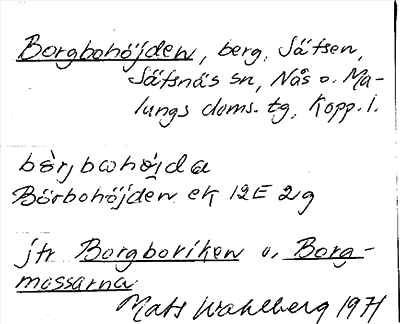 Borgbohöjden, berg, Sätsen,
Säfsnäs sn, Nås o. Ma-
lungs doms. tg, Kopp. l.
Börbohöjden ek 12E 2g
jfr Borgboriken o. Borg-
mossarna
Mats Wahlberg 1971